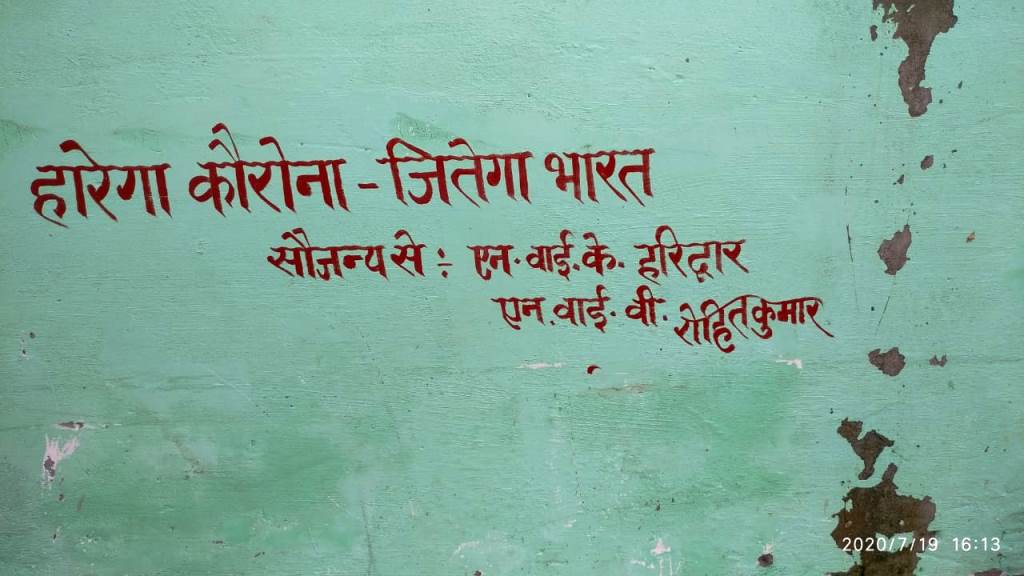 हारेगा कौरोना - जितेगा भारत
सौजन्य से : एन. वाई. के. हरिद्वार
एन. वाई. वी. रोहित कुमार
2020/7/19 16:13